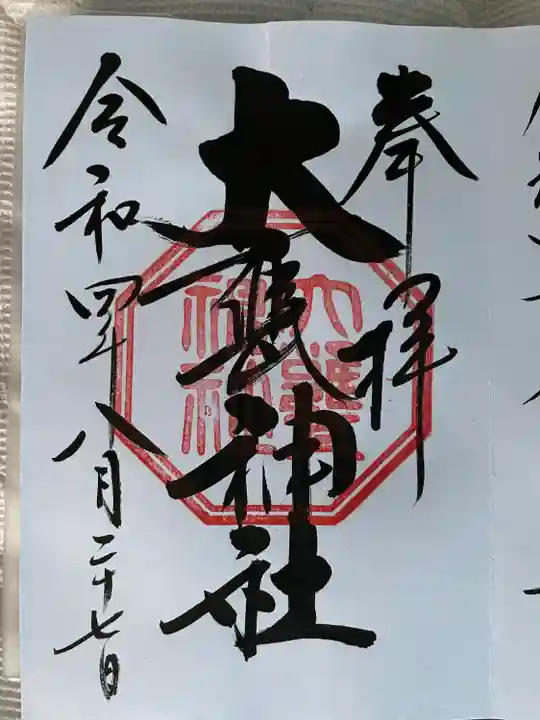 奉拝
大甕神社
令和四年八月二十七日
大甕
神社